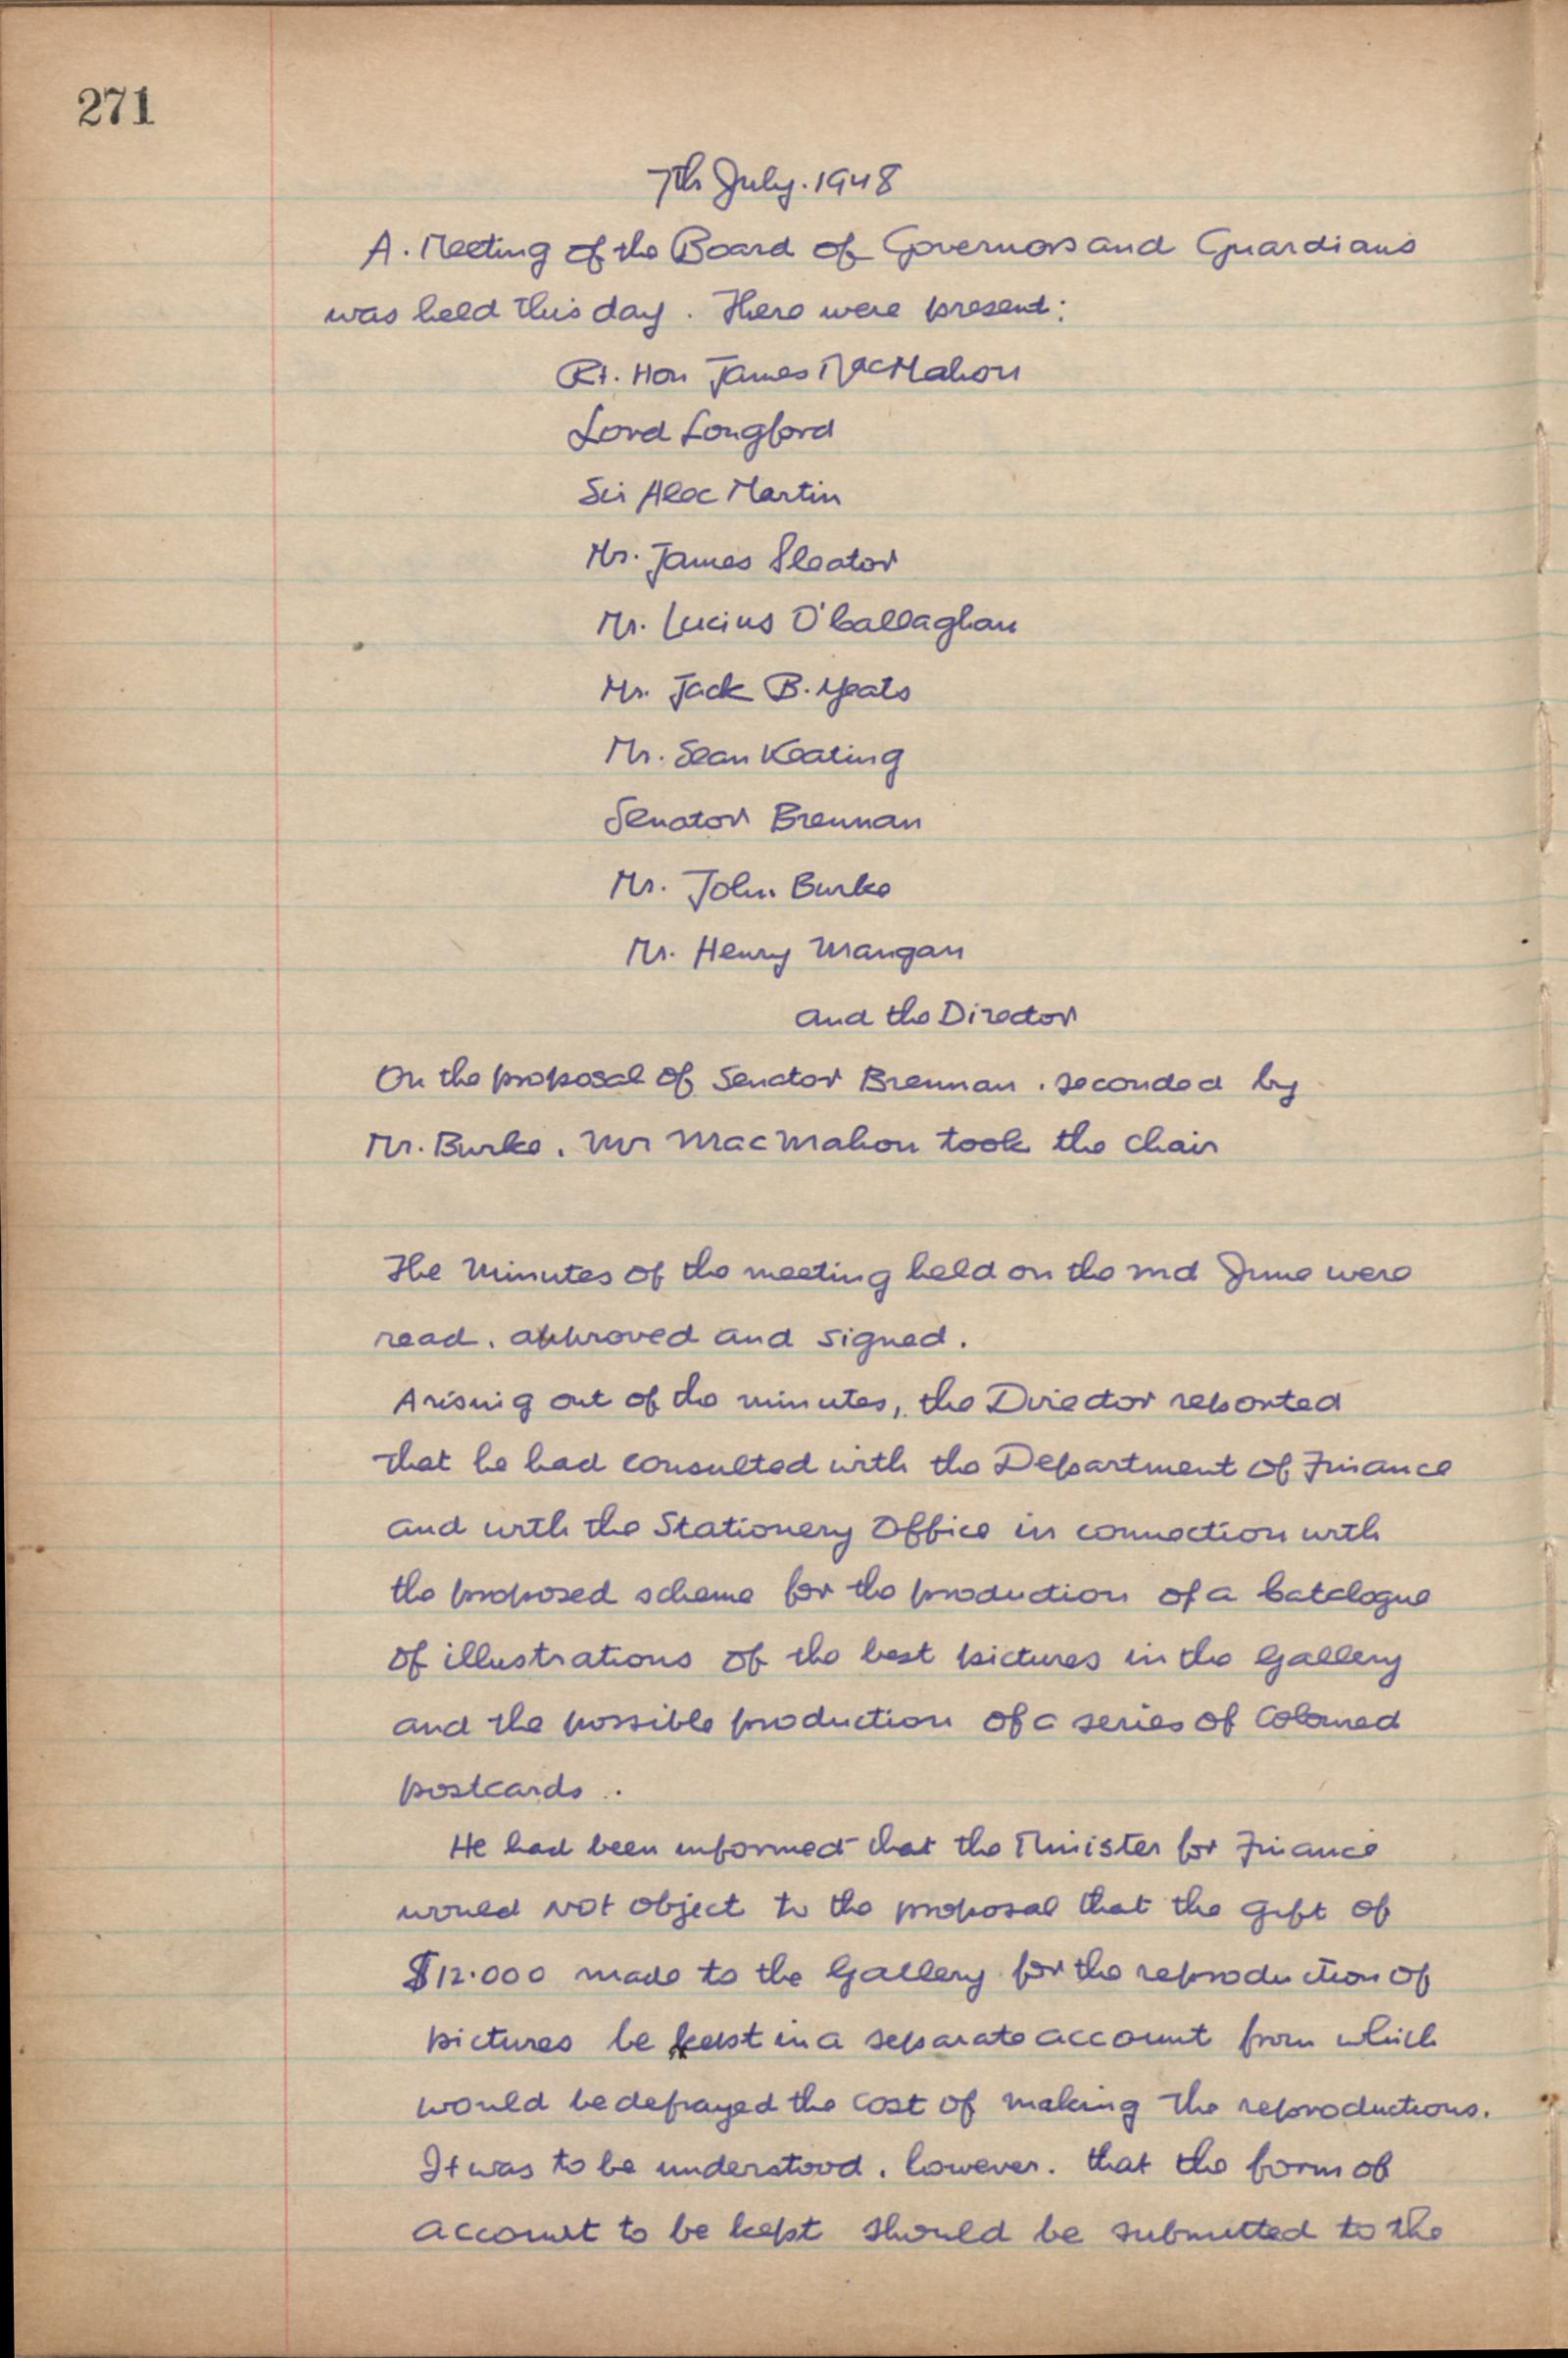 271
7th July. 1948
A. Meeting of the Board of Governors and Guardians
was held this day. There were present:
Rt. Hon James MacMahon
Lord Longford
Sir Alec Martin
Mr. James Sleator
Mr. Lucius O'Callaghan
Mr. Jack B. Yeats
Mr. Sean Keating
Senator Brennan
Mr. John Burke
Mr. Henry Mangan
and the Director
On the proposal of Senator Brennan. seconded by
Mr. Burke. Mr MacMahon took the chair
The Minutes of the meeting held on the June were
read. approved and signed.
Arising out of the minutes, the Director reported
that he had consulted with the Department of Finance
and with the Stationery Office in connection with
the proposed scheme for the production of a Catalogue
of illustrations of the best pictures in the Gallery
and the possible production of a series of Coloured
postcards.
He had been informed that the Minister for Finance
would not object to the proposal that the gift of
$12.000 made to the Gallery for the reproduction of
pictures be kept in a separate account from which
would be defrayed the cost of making the reproductions.
It was to be understood. however. that the form of
account to be kept should be submitted to the